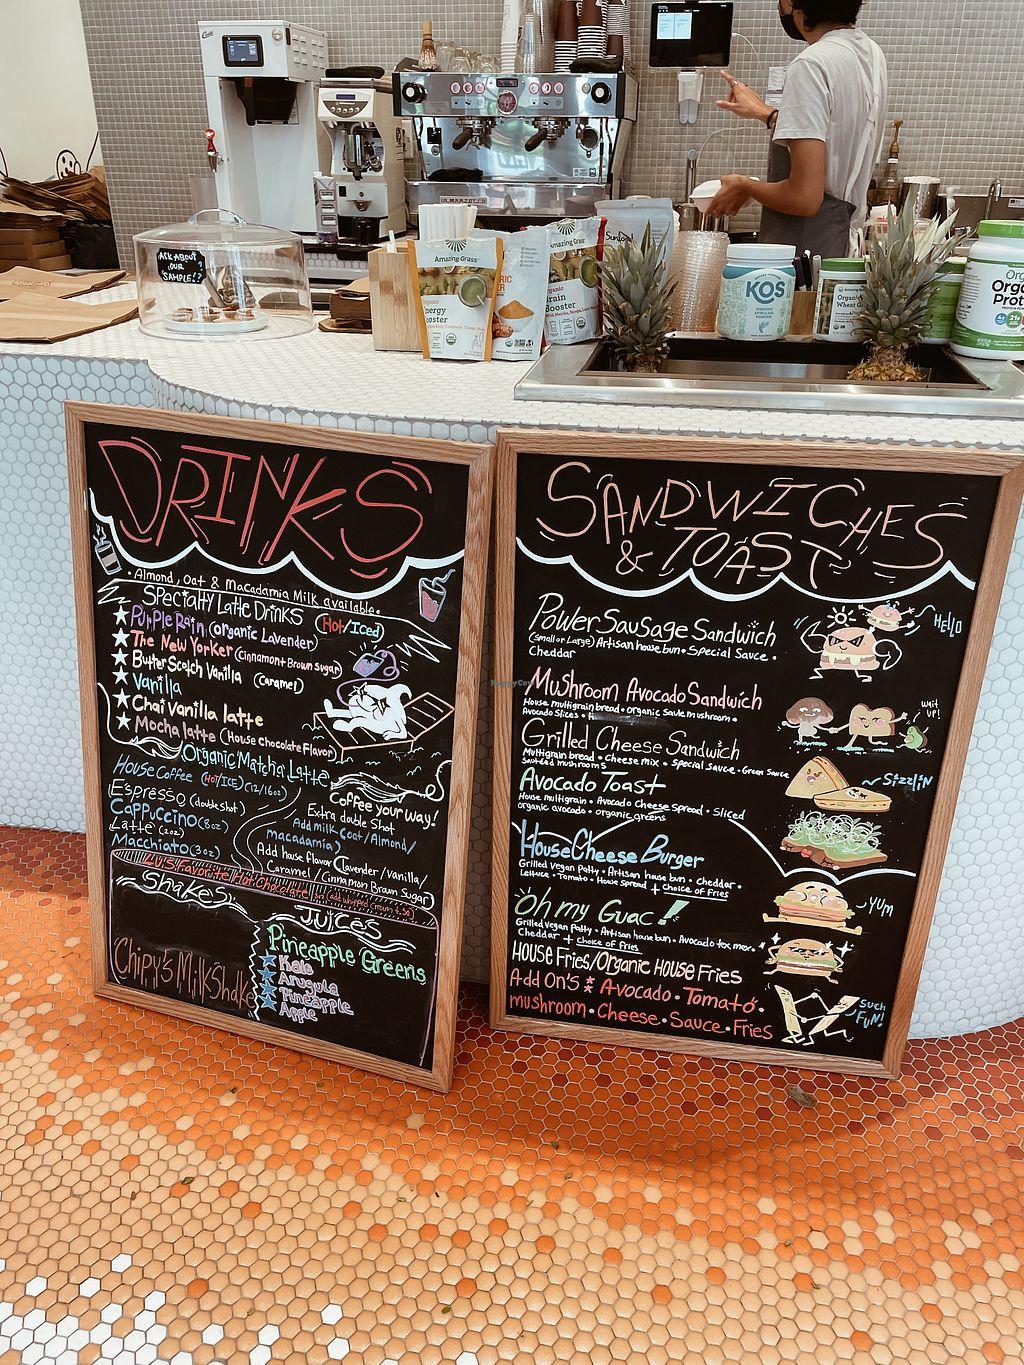 ASK ABOUT
OUR
SAMPLE!?
Amazing Grass
Organic
Energy
Booster
Amazing Grass
Organic
Brain
Booster
KOS
ORGANIC
SPIRULINA
POWDER
LA MARZOCCO
DRINKS
• Almond, Oat & Macadamia Milk available.
Specialty Latte Drinks (Hot/Iced)
★ Purple Rain (organic Lavender)
★ The New Yorker (Cinnamon+Brown Sugar)
★ Butter Scotch Vanilla (Caramel)
★ Vanilla
★ Chai Vanilla latte
★ Mocha latte (House Chocolate Flavor)
Organic Matcha Latte
House Coffee (HOT/ICE) (12/16oz)
Espresso (double shot)
Cappuccino (8oz)
Latte (12oz)
Macchiato (3oz)
Coffee your way!
Extra double Shot
Add milk (oat/Almond/
macadamia)
Add house flavor (lavender/Vanilla/
Caramel/Cinnamon Brown Sugar)
Luis Favorite Hot Chocolate
Shakes
Chipy's MilkShake
JUICES
Pineapple Greens
★ Kale
★ Arugula
★ Pineapple
★ Apple
SANDWICHES
& TOAST
Power Sausage Sandwich
(small or Large) Artisan house bun • Special Sauce •
Cheddar
HELLO
Mushroom Avocado Sandwich
House multigrain bread • organic Saute mushroom •
Avocado Slices •
wait
UP!
Grilled Cheese Sandwich
Multigrain bread • Cheese mix • Special sauce • Green Sauce
Sauteed mushrooms
~SizzliN
Avocado Toast
House multigrain • Avocado Cheese Spread • Sliced
organic avocado • organic greens
House Cheese Burger
Grilled Vegan patty • Artisan house bun • cheddar •
Lettuce • Tomato • House Spread + choice of Fries
~YUM
Oh my Guac!
Grilled vegan patty • Artisan house bun • Avocado tex mex •
Cheddar + choice of fries
HOUSE Fries/Organic HOUSE Fries
Add On's : Avocado • Tomato •
mushroom • Cheese • Sauce • Fries
Such
FUN!